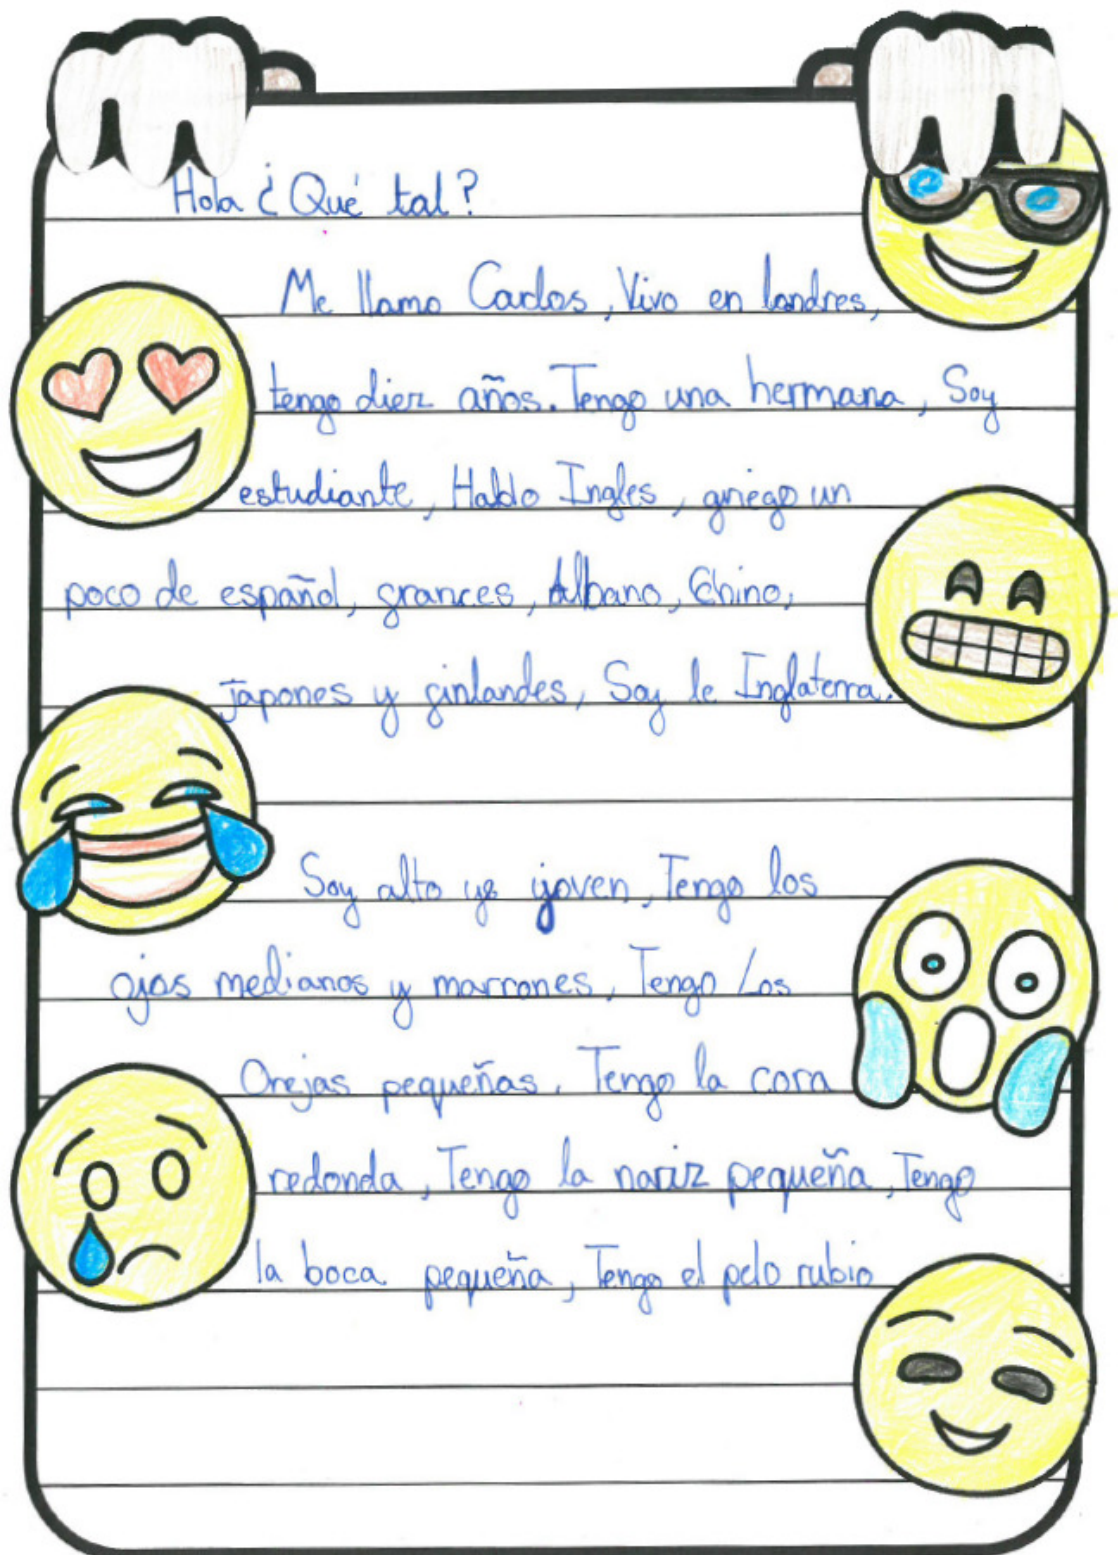 Hola ¿Qué tal?
Me llamo Carlos, Vivo en londres,
tengo diez años. Tengo una hermana, Soy
estudiante, Hablo Ingles, griego un
poco de español, grances, Albano, Chino,
japones y ginlandes, Soy de Inglaterra.
Soy alto y joven, Tengo los
ojos medianos y marrones, Tengo Los
Orejas pequeñas. Tengo la cara
redonda, Tengo la nariz pequeña, Tengo
la boca pequeña, Tengo el pelo rubio